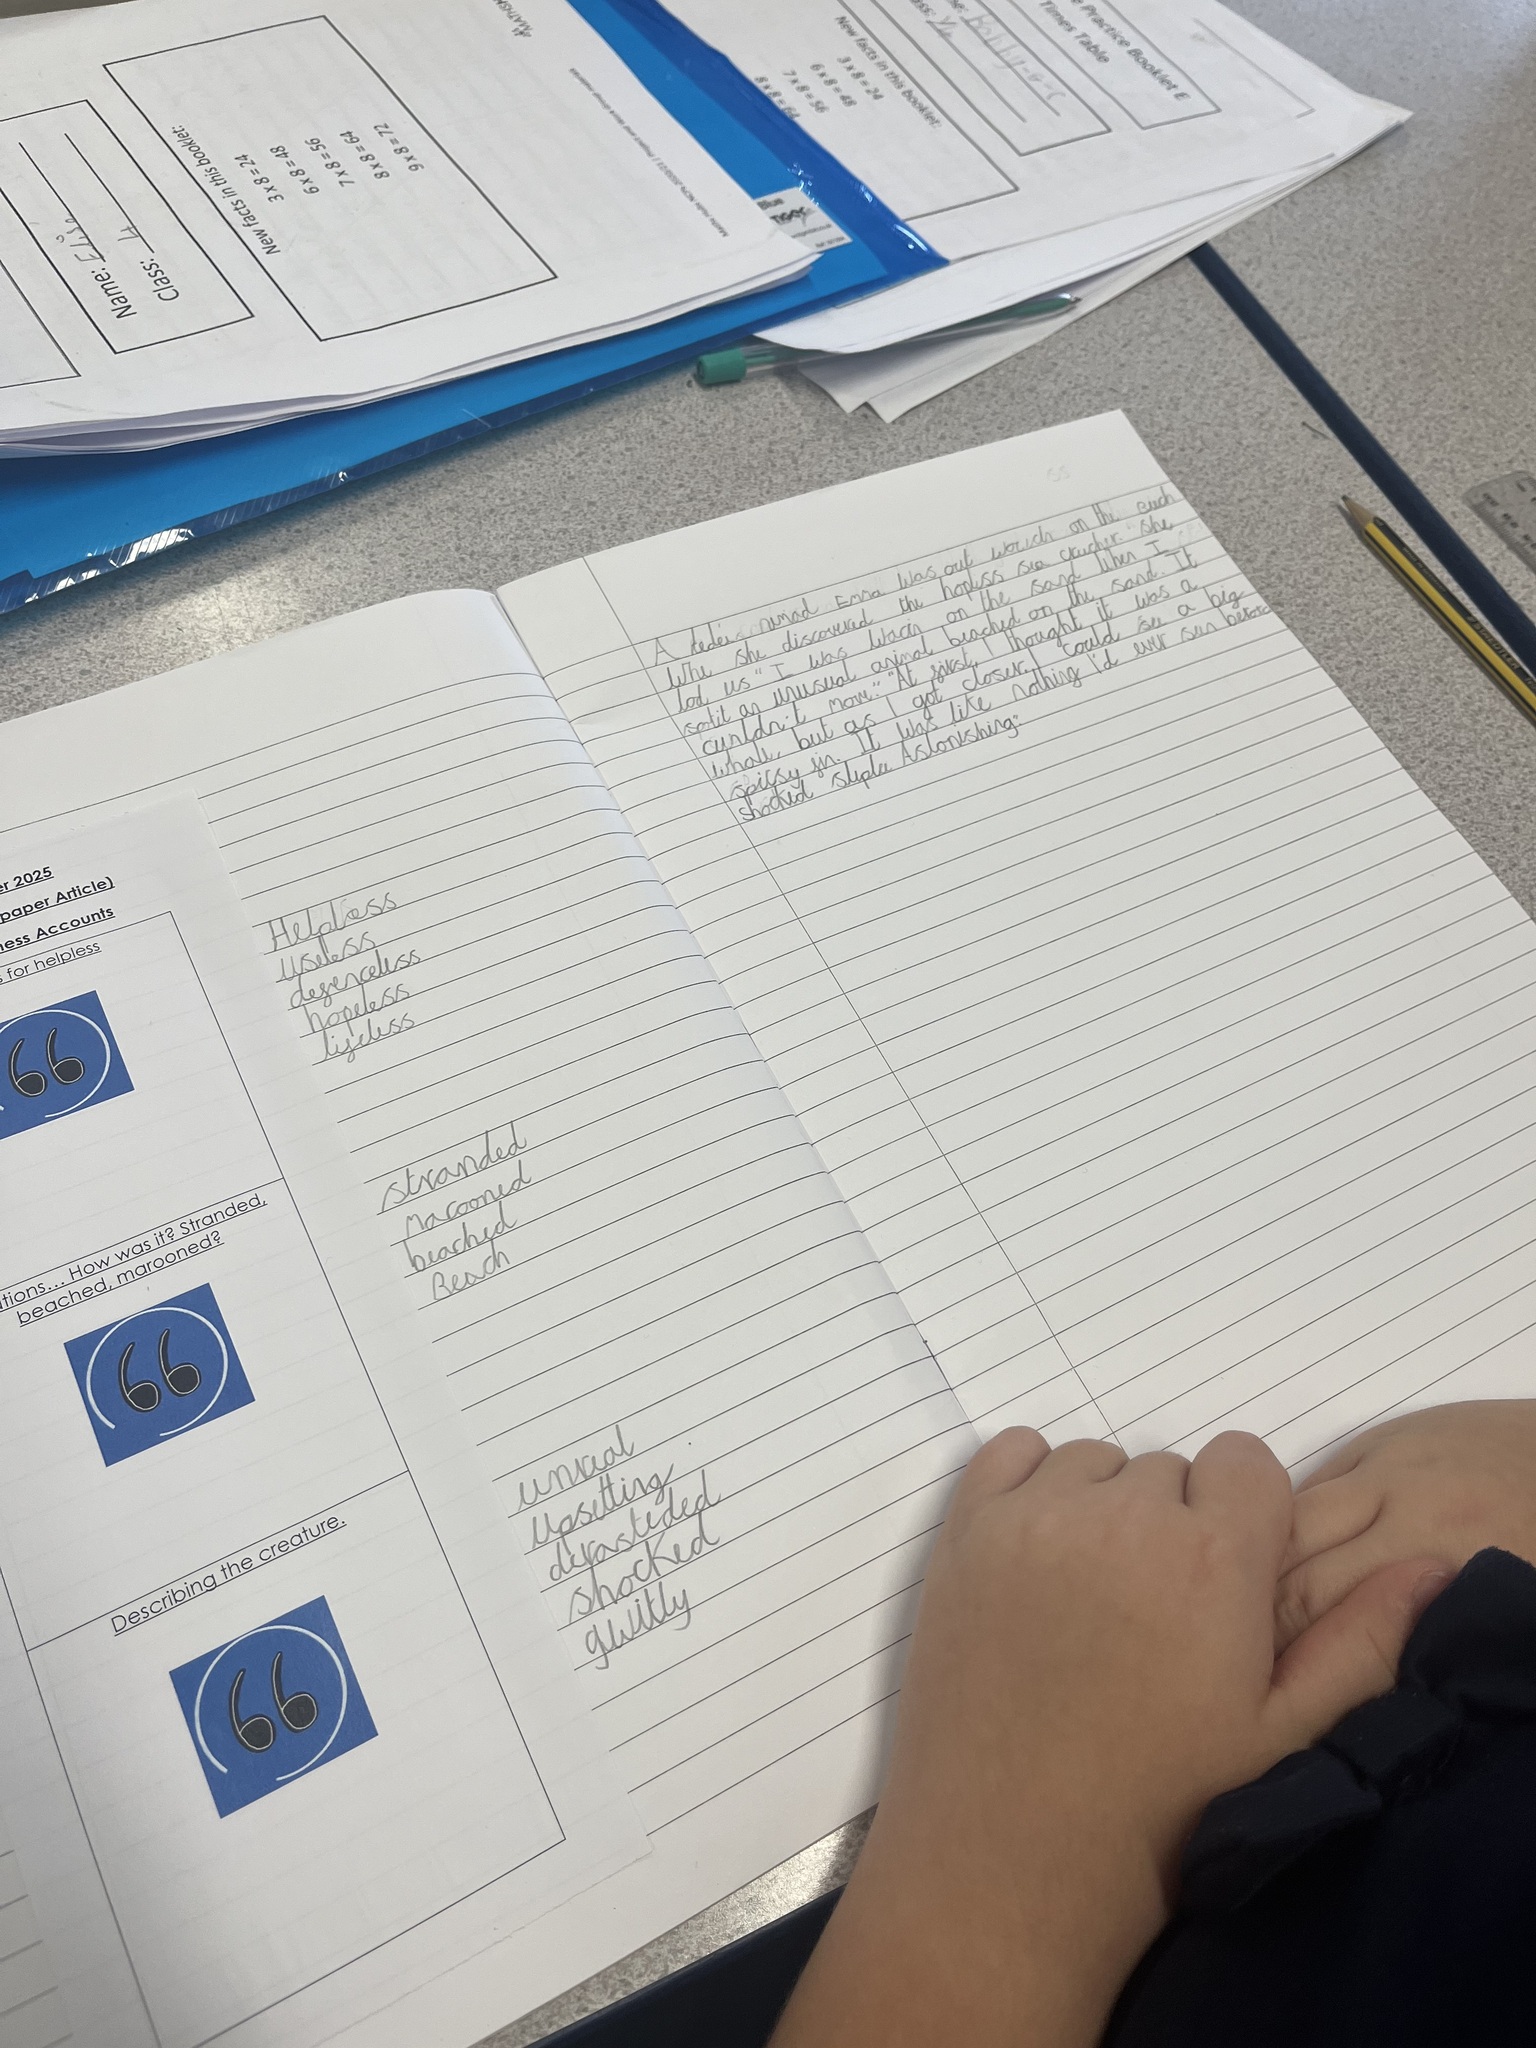 MATHSHUBS
Name: Elisa
Class: 4
New facts in this booklet:
3 x 8 = 24
6 x 8 = 48
7 x 8 = 56
8 x 8 = 64
9 x 8 = 72
Practice Booklet E
Times Table
New facts in this booklet:
3 x 8 = 24
6 x 8 = 48
7 x 8 = 56
8 x 8 = 64
er 2025
paper Article)
ness Accounts
s for helpless
66
tions... How was it? Stranded,
beached, marooned?
66
Describing the creature.
66
Helpless
useless
defenceless
hopeless
lifeless
stranded
marooned
beached
Reach
unreal
upsetting
devasteded
shocked
gwitly
A Emma was out on the
Whe she discovered the hopless sea she
us" I was on the sand when I
an unusual animal beached on the sand. It
move." "At first, I thought it was a
whale, but as I got closer, I could see a big
It was like nothing I'd ever sen
shocked Astonishing"